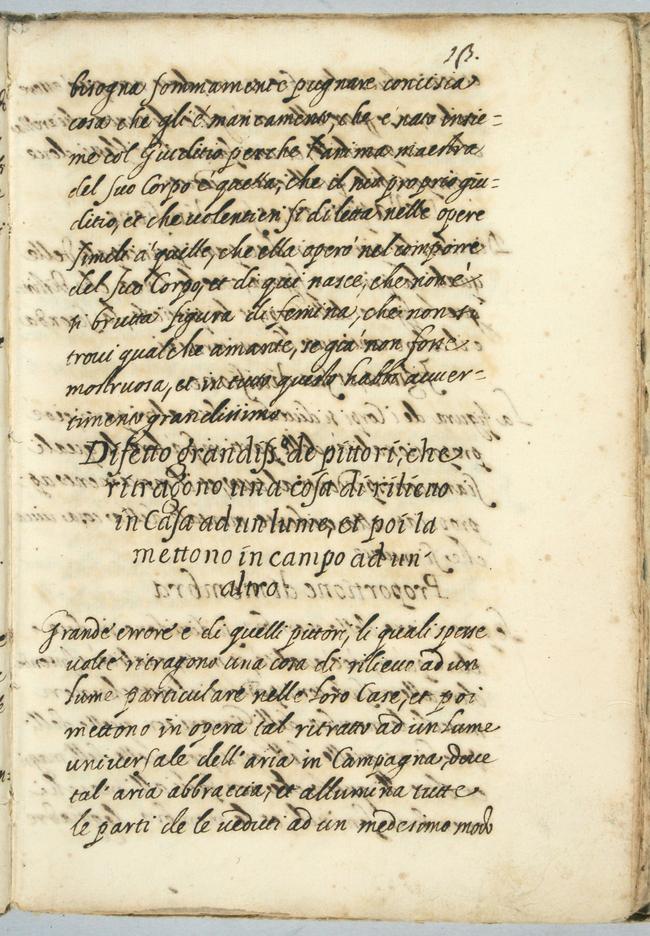 13.
bisogna sommamente pugnare conciosia
cosa che gli è mancamento, che è nato insie=
me col Giuditio perche l'anima maestra
del suo Corpo è quella, che il tuo proprio giu=
ditio, et che volentieri si diletta nelle opere
simili a' quelle, che ella operò nel comporre
del suo Corpo, et di qui nasce, che non è
sì brutta figura di femina, che non si
trovi qualche amante, se già non fosse
mostruosa, et in tutto questo habbi avver=
timento grandissimo
Difetto grandiss.o de pittori, che
ritragono una cosa di rilievo
in Casa ad un lume, et poi la
mettono in campo ad un'
altro.
Grande errore è di quelli pittori, li quali spesse
volte ritragono una cosa di rilievo ad un
lume particulare nelle loro Case, et poi
mettono in opera tal ritratto ad un lume
universale dell'aria in Campagna, dove
tal' aria abbraccia, et allumina tutte
le parti de le veduti ad un medesimo modo